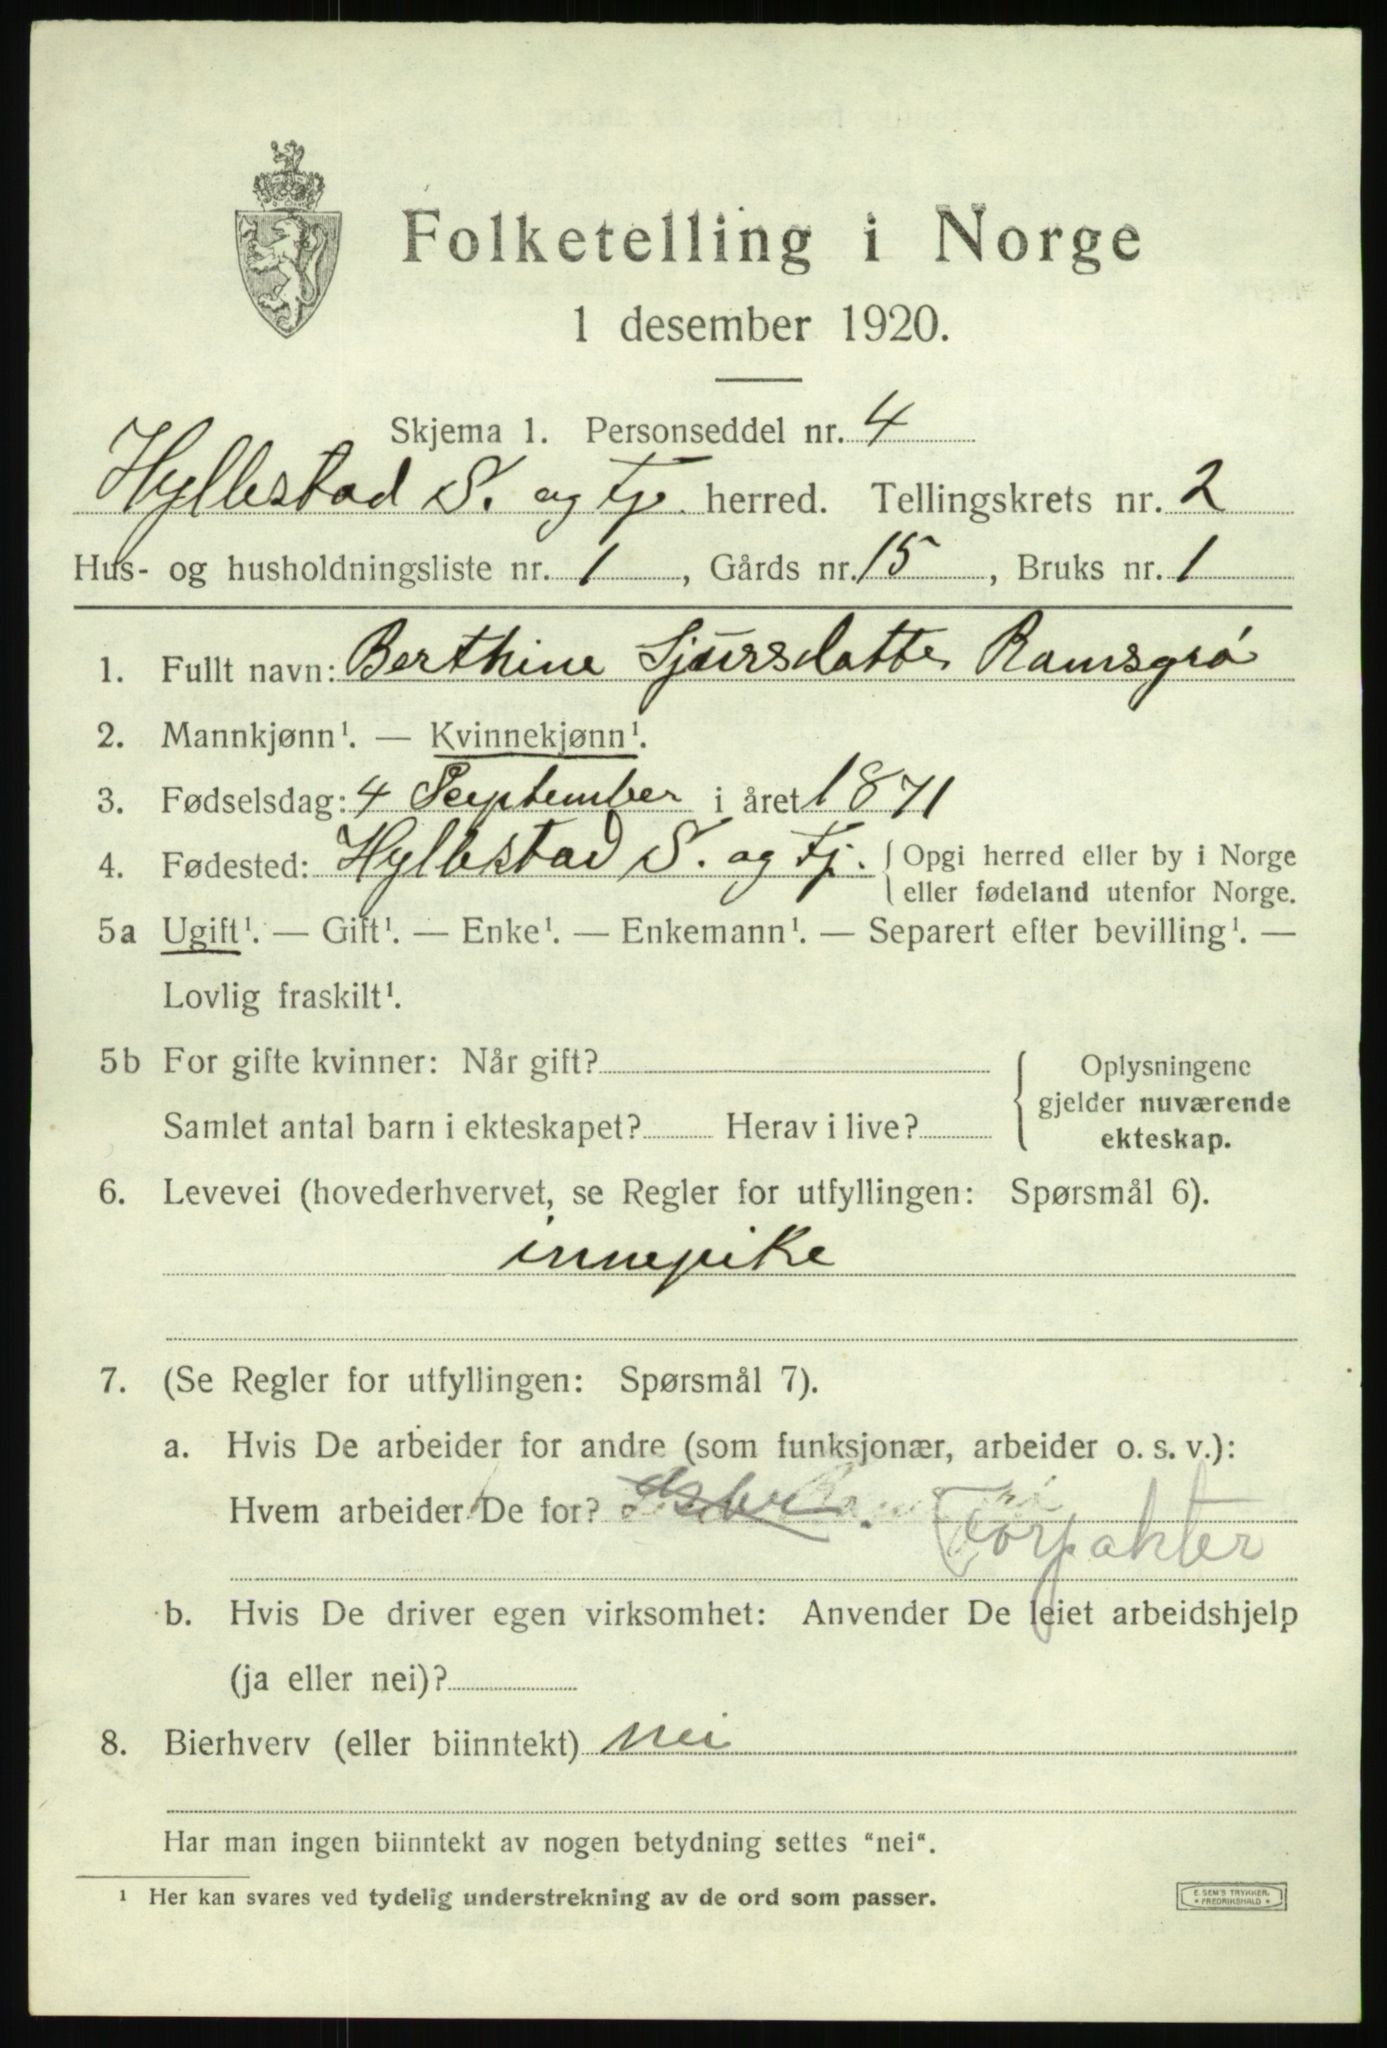 Folketelling i Norge
1 desember 1920.
Skjema 1. Personseddel nr. 4
Hyllestad S. og Fj. herred. Tellingskrets nr. 2
Hus- og husholdningsliste nr. 1, Gårds nr. 15, Bruks nr. 1
1. Fullt navn: Berthine Sjursdatter Ramsgrø
2. Mannkjønn¹. — Kvinnekjønn¹.
3. Fødselsdag: 4 September i året 1871
4. Fødested: Hyllestad S. og Fj. { Opgi herred eller by i Norge
eller fødeland utenfor Norge.
5a Ugift¹. — Gift¹. — Enke¹. — Enkemann¹. — Separert efter bevilling¹. —
Lovlig fraskilt¹.
5b For gifte kvinner: Når gift?
Samlet antal barn i ekteskapet? Herav i live?
Oplysningene
gjelder nuværende
ekteskap.
6. Levevei (hovederhvervet, se Regler for utfyllingen: Spørsmål 6).
innepike
7. (Se Regler for utfyllingen: Spørsmål 7).
a. Hvis De arbeider for andre (som funksjonær, arbeider o. s. v.):
Hvem arbeider De for?
Forpakter
b. Hvis De driver egen virksomhet: Anvender De leiet arbeidshjelp
(ja eller nei)?
8. Bierhverv (eller biinntekt) nei
Har man ingen biinntekt av nogen betydning settes "nei".
¹ Her kan svares ved tydelig understrekning av de ord som passer.
E. SEM'S TRYKKERI
FREDRIKSHALD